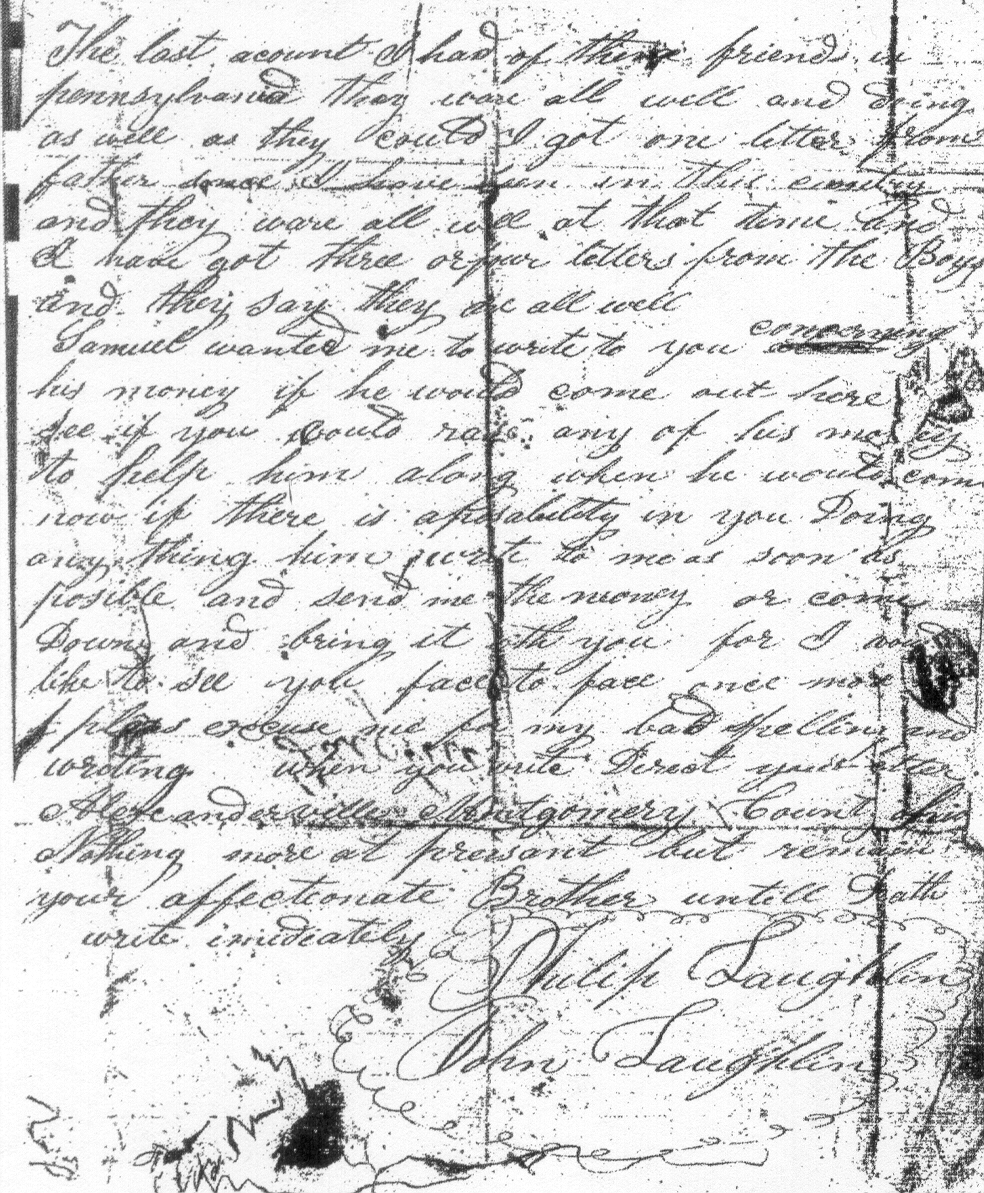 The last acount I had of the friend in
pennsylvania they ware all well and doing
as well as they could I got one letter from
father since I have ben in this cuntry
and they ware all well at that time and
I have got three or four letters from the Boys
and they say they are all well
Samuel wanted me to write to you concerning
his money if he would come out here
see if you could rais any of his money
to help him along when he would com
now if there is aposability in you Doing
any thing him write to me as soon as
posible and send me the money or come
Down and bring it with you for I
like to see you face to face once more
pleas excuse me for my bad spelling and
writing when you write Direct your letter
Alexandersville Montgomery County Ohio
Nothing more at presant but remain
your affectionate Brother untill Death
write imidiately
Philip Laughlin
John Laughlin